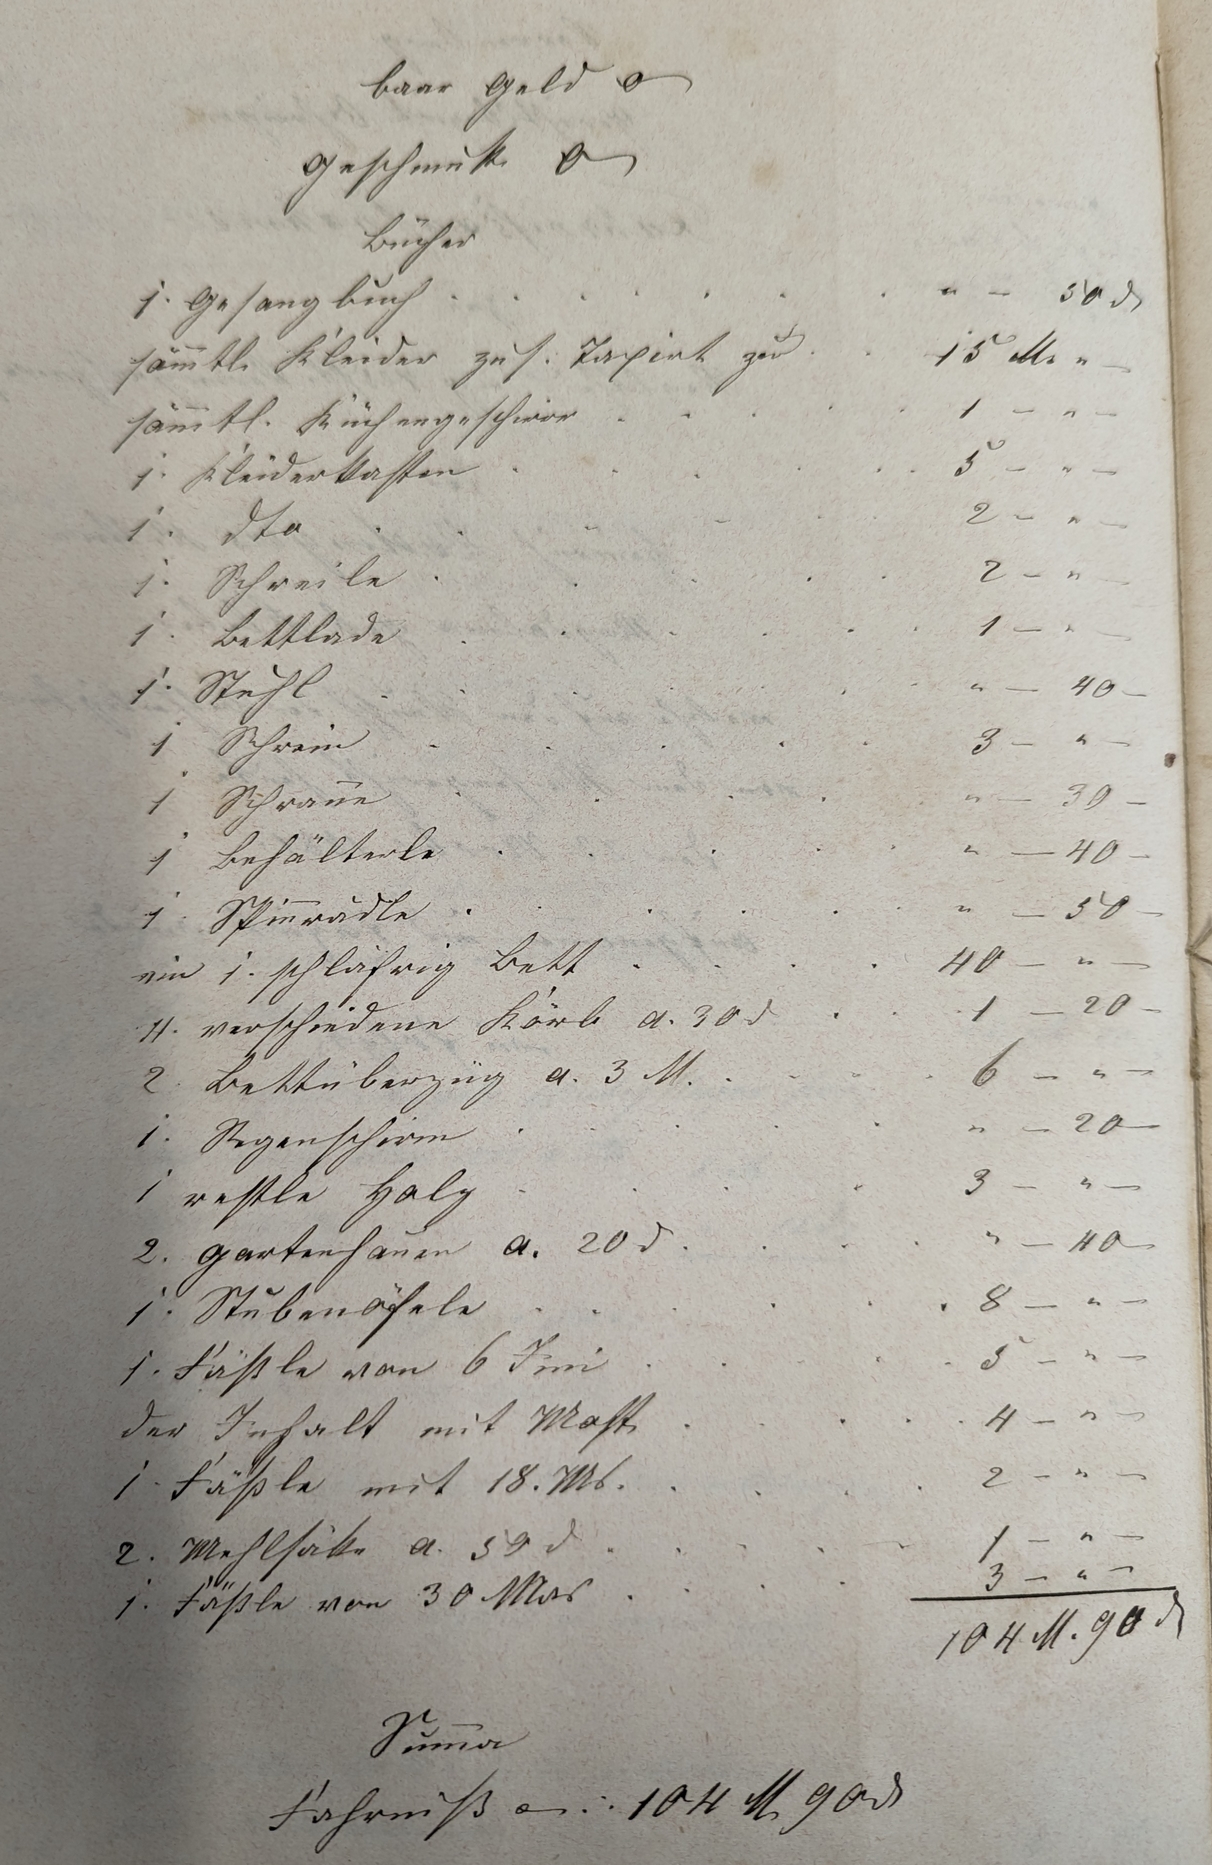 baar Geld 0
Geschmuk 0
Bücher
1. Gesangbuch . . . . . . . " — 50 d
sämmtl. Kleider zus. Taxirt zu . . 15 M. " —
sämmtl. Küchengeschirr . . . . . 1 — " —
1. Kleiderkasten . . . . . 5 — " —
1. dto . . . . . 2 — " —
1. Schreile . . . . . 2 — " —
1. Bettlade . . . . . . 1 — " —
1. Stuhl . . . . . . " — 40 —
1 Schrein . . . . . 3 — " —
1 Schrane . . . . . " — 30 —
1 Behälterle . . . . . " — 40 —
1 Spinnrädle . . . . . " — 50 —
ein 1. schläfrig Bett . . . . . 40 — " —
4. verschiedene Körb a. 30 d . . . 1 — 20 —
2. Bettüberzüg a. 3 M. . . . . 6 — " —
1. Regenschirm . . . . . " — 20 —
1 restle Holz . . . . 3 — " —
2. Gartenhauen a. 20 d . . . . " — 40 —
1. Stubenöfele . . . . . . 8 — " —
1. Fäßle von 6 Imi . . . . . 5 — " —
der Inhalt mit Most . . . . . 4 — " —
1. Fäßle mit 18. Ms. . . . . 2 — " —
2. Mehlsäke a. 50 d . . . . . 1 — " —
1. Fäßle von 30 Mas . . . . 3 — " —
104 M. 90 d
Summa
Fahrniß 104 M 90 d